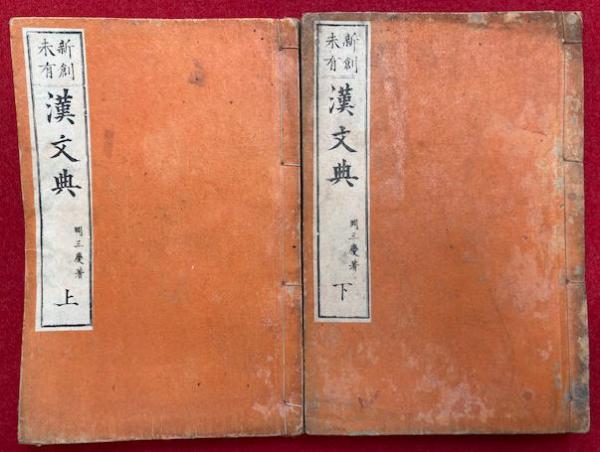 新創
未有
漢文典
岡三慶著
上
新創
未有
漢文典
岡三慶著
下